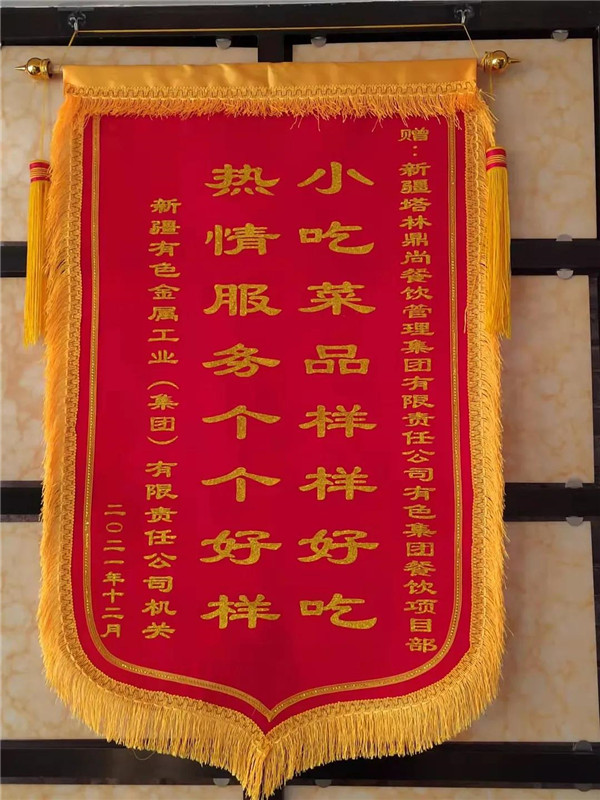 赠：新疆塔林鼎尚餐饮管理集团有限责任公司有色集团餐饮项目部
小吃菜品样样好吃
热情服务个个好样
新疆有色金属工业（集团）有限责任公司机关
二〇二一年十二月